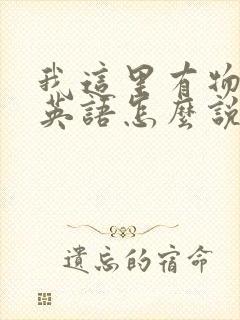 我這里有物
英語怎麼說
遺忘的宿命